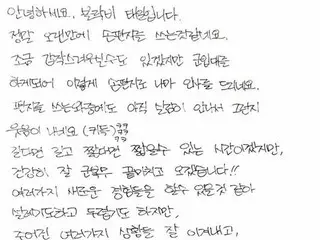 안녕하세요, 블락비 태일입니다.
정말 오랜만에 손편지를 쓰는것같네요.
조금 갑작스러우실수도 있겠지만 군입대를
하게되어 이렇게 손편지로 나마 인사를 드리네요.
편지를 쓰는와중에도 아직 실감이 안나서 그런지
웃음이 나네요 (키득)ㅋㅋ ㅋㅋ
길다면 길고 짧다면 짧을수 있는 시간이겠지만,
건강히 잘 군복무 끝마치고 오겠습니다!!
여러가지 새로운 경험들을 할수 있을것 같아
설레기도하고 두렵기도 하지만,
주어진 여러가지 상황들을 잘 이겨내고,